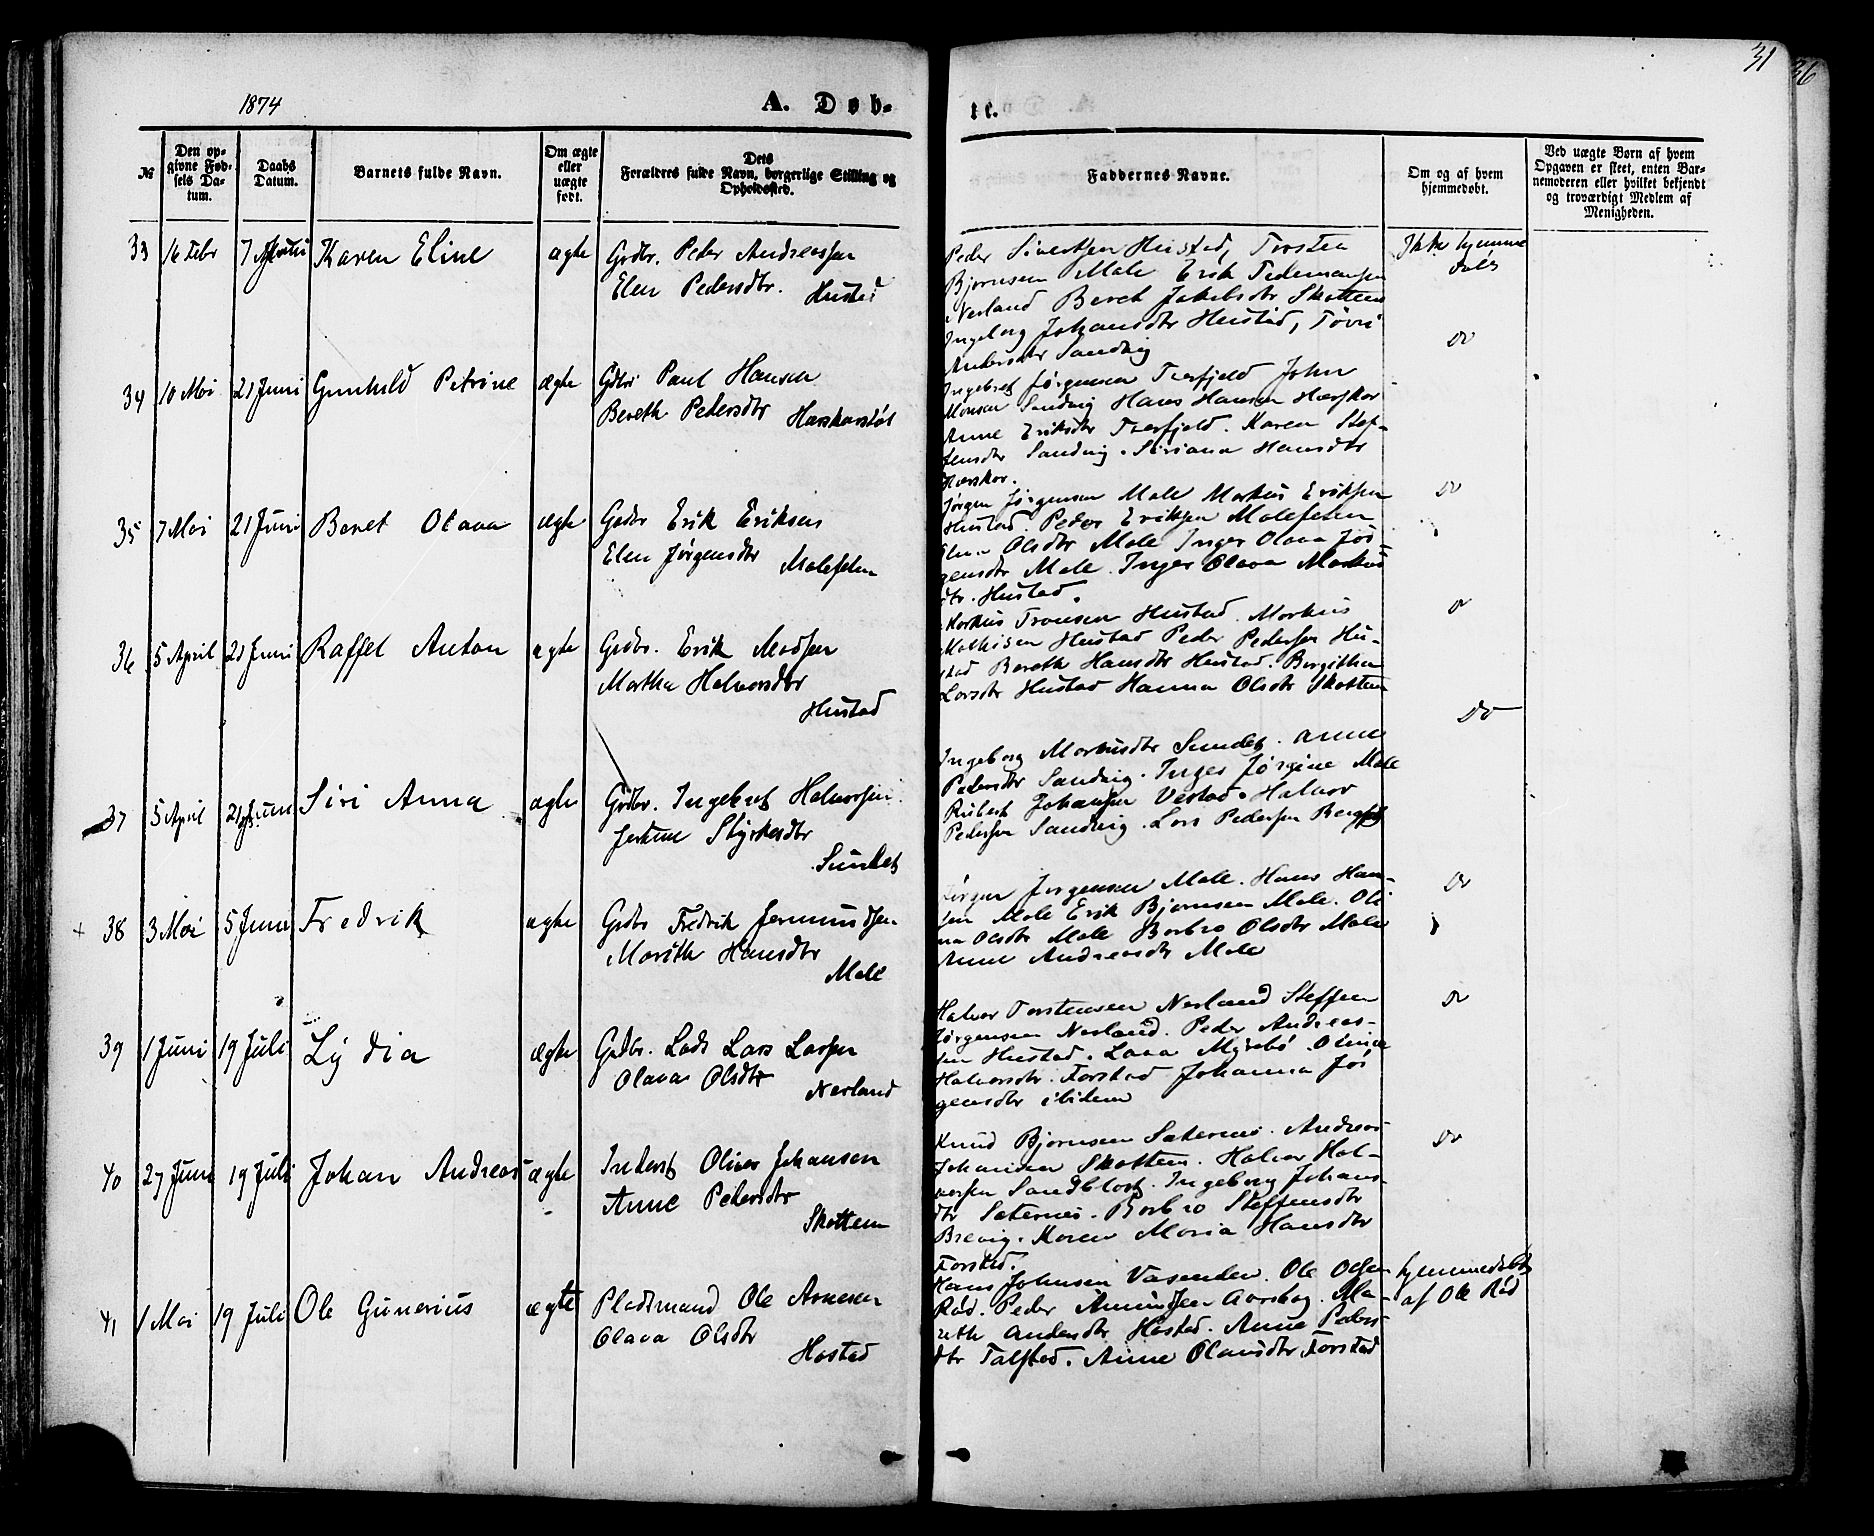 31
36
1874
A. Døb-
te.
№
Den op-
givne Fød-
sels Da-
tum.
Daabs
Datum.
Barnets fulde Navn.
Om ægte
eller
uægte
født.
Dets
Forældres fulde Navn, borgerlige Stilling og
Opholdssted.
Faddernes Navne.
Om og af hvem
hjemmedøbt.
Ved uægte Børn af hvem
Opgaven er skeet, enten Bar-
nemoderen eller hvilket bekjendt
og troværdigt Medlem af
Menigheden.
33 16 Febr 7 Karen Eline ægte Grdbr. Peder Andreassen
Elen Pedersdtr. Hustad
Peder Sivertsen Hustad, Torsten
Bjørnsen Male Erik Tedemansen
Nerland Beret Jakobsdtr Skottem
Ingeborg Johansdtr Hustad,
Andersdtr Sandvig
Ikke hjemme
døbt
34 10 Mai 21 Juni Gunhild Petrine ægte Paul Hansen
Bereth Pedersdtr
Ingebret Jørgensen John
Monsen Sandvig Hans Hansen
Anne Eriksdtr Karen Stef-
fensdtr Sandvig. Hansdtr
do
35 7 Mai 21 Juni Beret Olava ægte Grdbr Erik Eriksen
Elen Jørgensdtr
Jørgen Jørgensen Male Markus Eriksen
Hustad. Peder Eriksen
Olsdtr Male Inger Olava Jør-
gensdtr Male. Inger Olava Markus
dtr. Hustad.
do
36 5 April 21 Juni Raffel Anton ægte Grdbr. Erik Madsen
Martha Halvorsdtr
Hustad
Markus Tronsen Hustad. Markus
Mathisen Hustad Peder Pedersen Hu-
stad Bereth Hansdtr Hustad. Bergitha
Larsdtr Hustad Hanna Olsdtr Skottem
do
37 5 April 21 Juni Siri Anna ægte Grdbr. Ingebret Halvorsen
Styrkersdtr
Sundet
Ingeborg Markusdtr Sundet. Anne
Pedersdtr Sandvig. Inger Jørgine Male
Johansen Vestad. Halvor
Pedersen Sandvig. Lars Pedersen
do
38 3 Mai 5 Juni Fredrik ægte Grdbr Fredrik Jermundsen
Marith Hansdtr
Male
Jørgen Jørgensen Male. Hans Han-
sen Male Erik Bjørnsen Male. Oli
na Olsdtr Male Borbro Olsdtr Male
Anne Andreasdtr Male
do
39 1 Juni 19 Juli Lydia ægte Grdbr. Lars Larsen
Olava Olsdtr
Nerland
Halvor Torstensen Nerland Steffen
Jørgensen Nerland. Peder Andreas-
sen Hustad. Lava Myrebø. Olina
Halvorsdtr. Forstad Johanna Jør
gensdtr ibidem
do
40 27 Juni 19 Juli Johan Andreas ægte Inderst Oliver Johansen
Anne Pedersdtr
Skottem
Knud Bjørnsen Sæternes. Andreas
Johansen Skottem. Halvor Hal-
vorsen Sandblost. Ingeborg Johans-
dtr Sæternes. Borbro Steffensdtr
Brevig. Karen Maria Hansdtr
Forstad.
do
41 1 Mai 19 Juli Ole Gunerius ægte Pladsmand Ole Arnesen
Olava Olsdtr
Hostad
Hans Johnsen Vasenden. Ole Olsen
Rød. Peder Amundsen Aarsbog. Ma-
reth Andersdtr Hostad. Anne Peders-
dtr Talstad. Anne Olausdtr Forstad
hjemmedøbt
af Ole Rød